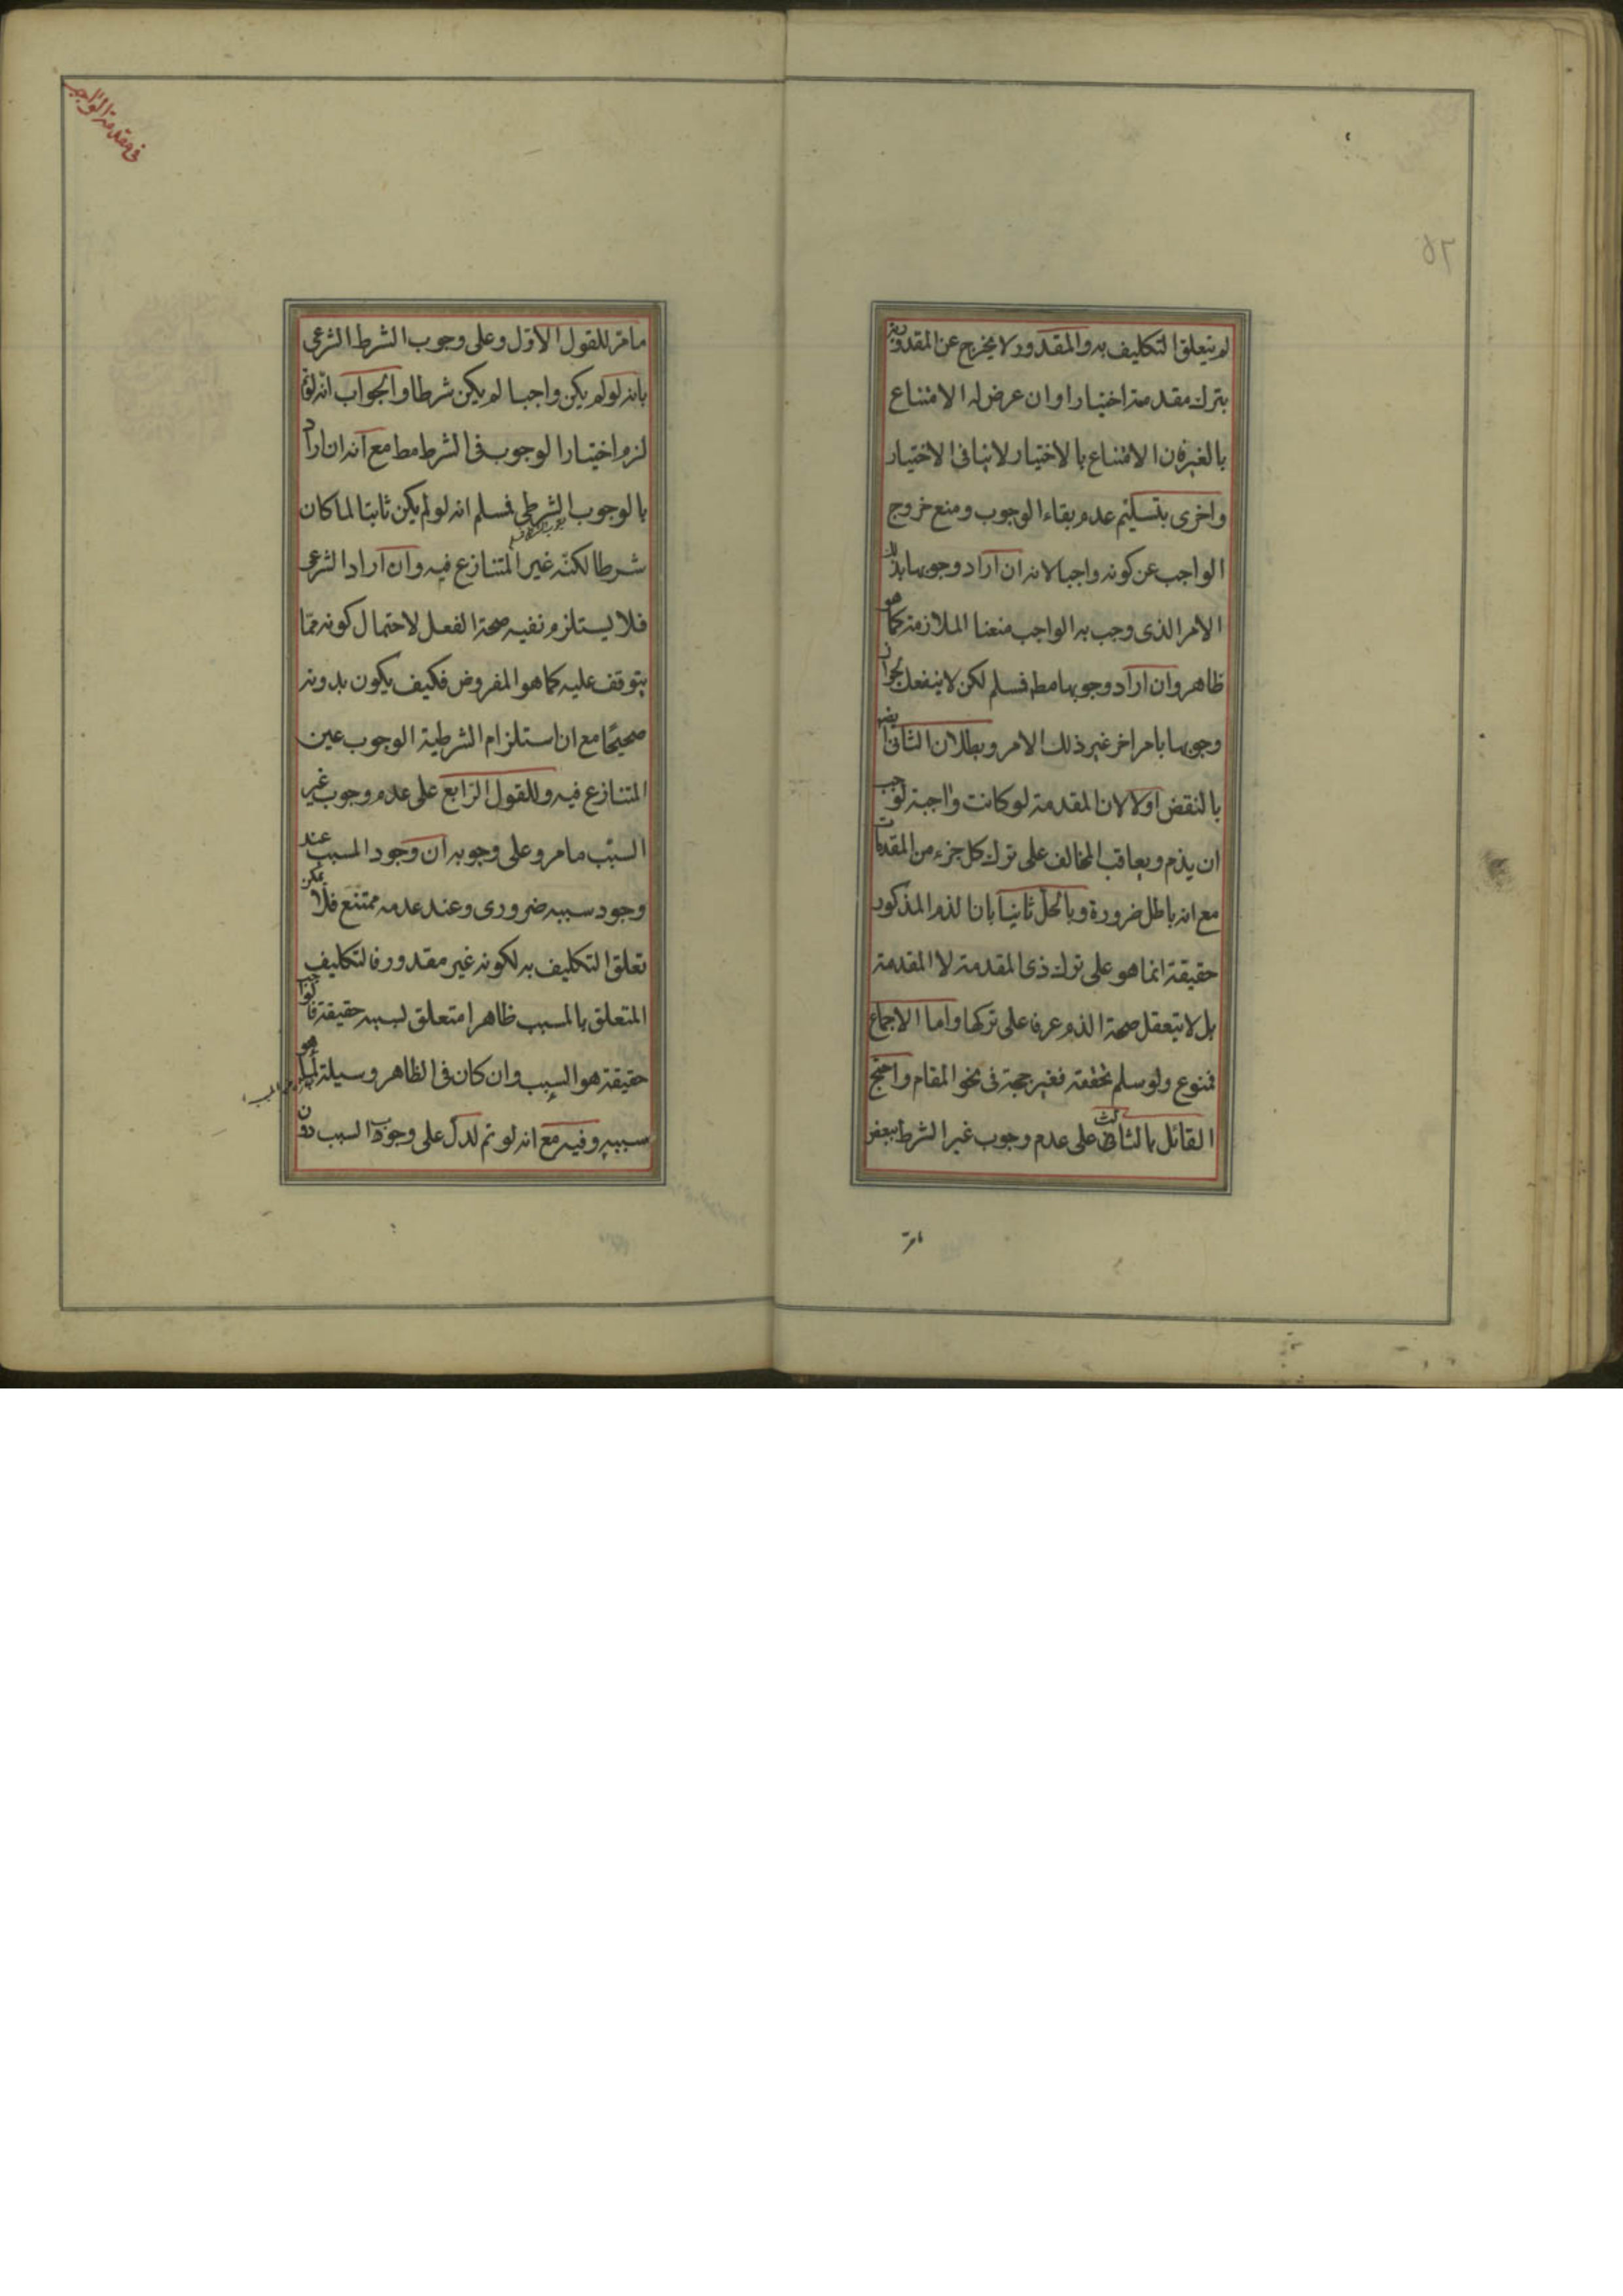 لم يتعلق التكليف به والمقدور لا يخرج عن المقدورية
بترك مقدمته اختيارا وان عرض له الامتناع
بالغير فان الامتناع بالاختيار لا ينافي الاختيار
واخرى بتسليم عدم بقاء الوجوب ومنع خروج
الواجب عن كونه واجبا لانه ان اراد وجوبها بذلك
الامر الذى وجب به الواجب منعنا الملازمة كما هو
ظاهر وان اراد وجوبها مط فسلم لكن لا ينفعك لجواز
وجوبها بامر اخر غير ذلك الامر وبطلان الثانى ايضا
بالنقض اولا لان المقدمة لو كانت واجبة لوجب
ان يذم ويعاقب المخالف على ترك كل جزء من المقدمات
مع انه باطل ضرورة وبالحل ثانيا بان الذم المذكور
حقيقة انما هو على ترك ذى المقدمة لا المقدمة
بل لا يتعقل صحة الذم عرفا على تركها واما الاجماع
فممنوع ولو سلم تحققه فغير حجة فى نحو المقام واحتج
القائل بالثالث على عدم وجوب غير الشرط ببعض
مامر
فى مقدمة الواجب
مامر للقول الاول وعلى وجوب الشرط الشرعى
بانه لو لم يكن واجبا لم يكن شرطا والجواب انه لو تم
لزم اختيار الوجوب فى الشرط مط مع انه ان اراد
بالوجوب الشرطى فمسلم انه لو لم يكن ثابتا لما كان
شرطا لكنه غير المتنازع فيه وان اراد الشرعى
فلا يستلزم نفيه صحة الفعل لاحتمال كونه مما
يتوقف عليه كما هو المفروض فكيف يكون بدونه
صحيحا مع ان استلزام الشرطية الوجوب عين
المتنازع فيه وللقول الرابع على عدم وجوب غير
السبب ما مر وعلى وجوبه ان وجود المسبب عند
وجود سببه ضرورى وعند عدمه ممتنع فلا يمكن
تعلق التكليف به لكونه غير مقدور فالتكليف
المتعلق بالمسبب ظاهرا متعلق بسببه حقيقة فالواجب
حقيقة هو السبب وان كان فى الظاهر وسيلة لما هو
سببه وفيه مع انه لو تم لدل على وجوب السبب دون